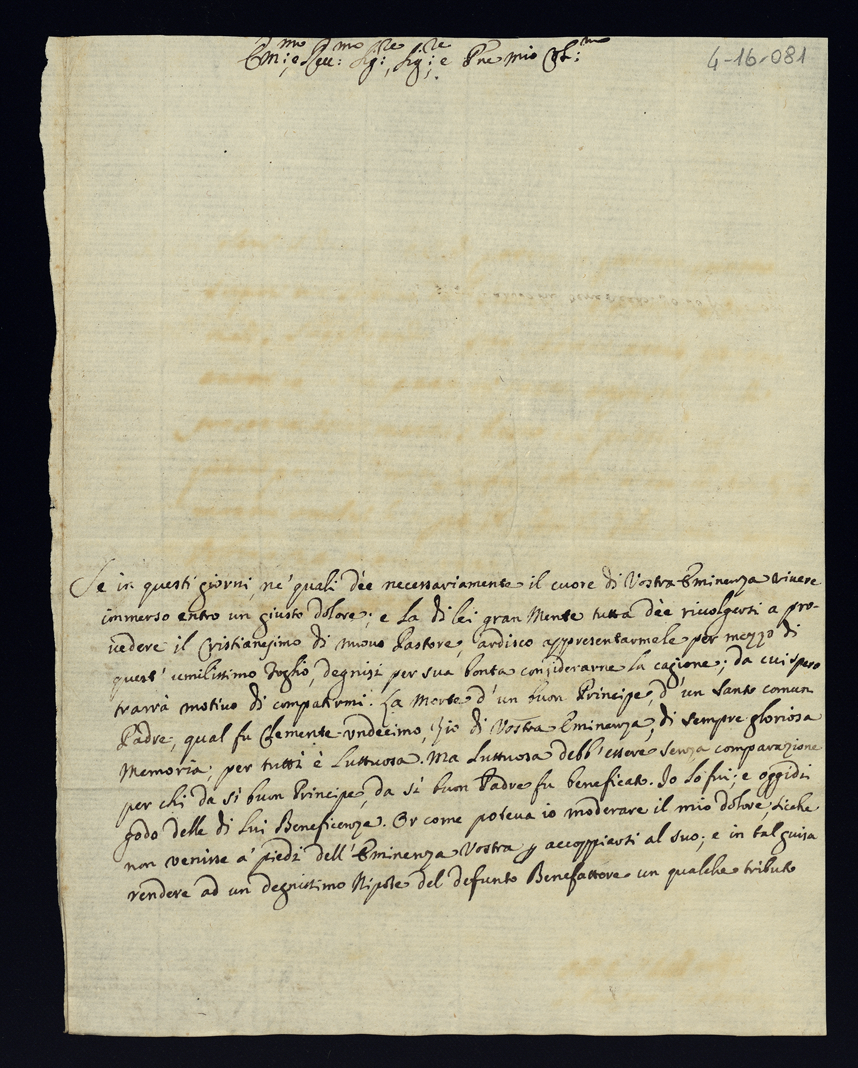 Em:mo, e Rev:mo Sig:re, Sig:re, e Pne mio Col:mo
4-16-081
Se in questi giorni ne' quali dèe necessariamente il cuore di Vostra Eminenza vivere
immerso entro un giusto dolore; e la di lei gran Mente tutta dèe rivolgersi a pro-
vedere il Cristianesimo di nuovo Pastore, ardisco appresentarmele per mezzo di
quest' umilissimo foglio, degnisi per sua bontà considerarne la cagione; da cui spero
trarrà motivo di compatirmi. La Morte d'un buon Principe, d'un Santo comun
Padre, qual fu Clemente undecimo, Zio di Vostra Eminenza, di sempre gloriosa
Memoria; per tutti è luttuosa. Ma luttuosa debb'essere senza comparazione
per chi da sì buon Principe, da sì buon Padre fu beneficato. Io lo fui; e oggidì
godo delle di lui Beneficenze. Or come poteva io moderare il mio dolore, sicche
non venisse a' piedi dell'Eminenza Vostra p accoppiarsi al suo; e in tal guisa
rendere ad un degnissimo Nipote del defunto Benefattore un qualche tributo